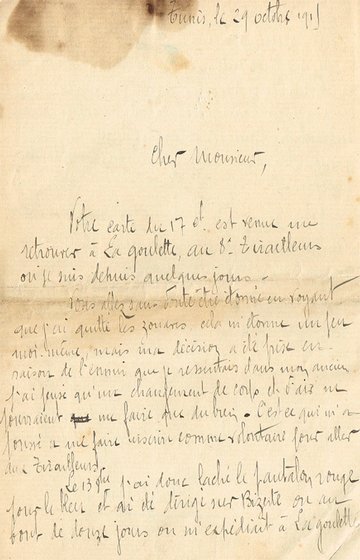 Tunis, le 29 octobre 1915
Cher Monsieur,
Votre carte du 17 ct. est venue me
retrouver à La goulette, au 8e Tirailleurs
où je suis depuis quelques jours.
Vous allez sans doute être étonné en voyant
que j'ai quitté les zouaves. cela m'étonne un peu
moi-même, mais ma décision a été prise en
raison de l'ennui que je ressentais dans mon ancien
J'ai pensé qu'un changement de corps et d'air ne
pourraient me faire que du bien. C'est ce qui m'a
poussé à me faire inscrire comme volontaire pour aller
aux Tirailleurs.
Le 13 j'ai donc laché le pantalon rouge
pour le bleu et ai été dirigé sur Bizerte où au
bout de douze jours on m'expédiait à La goulette